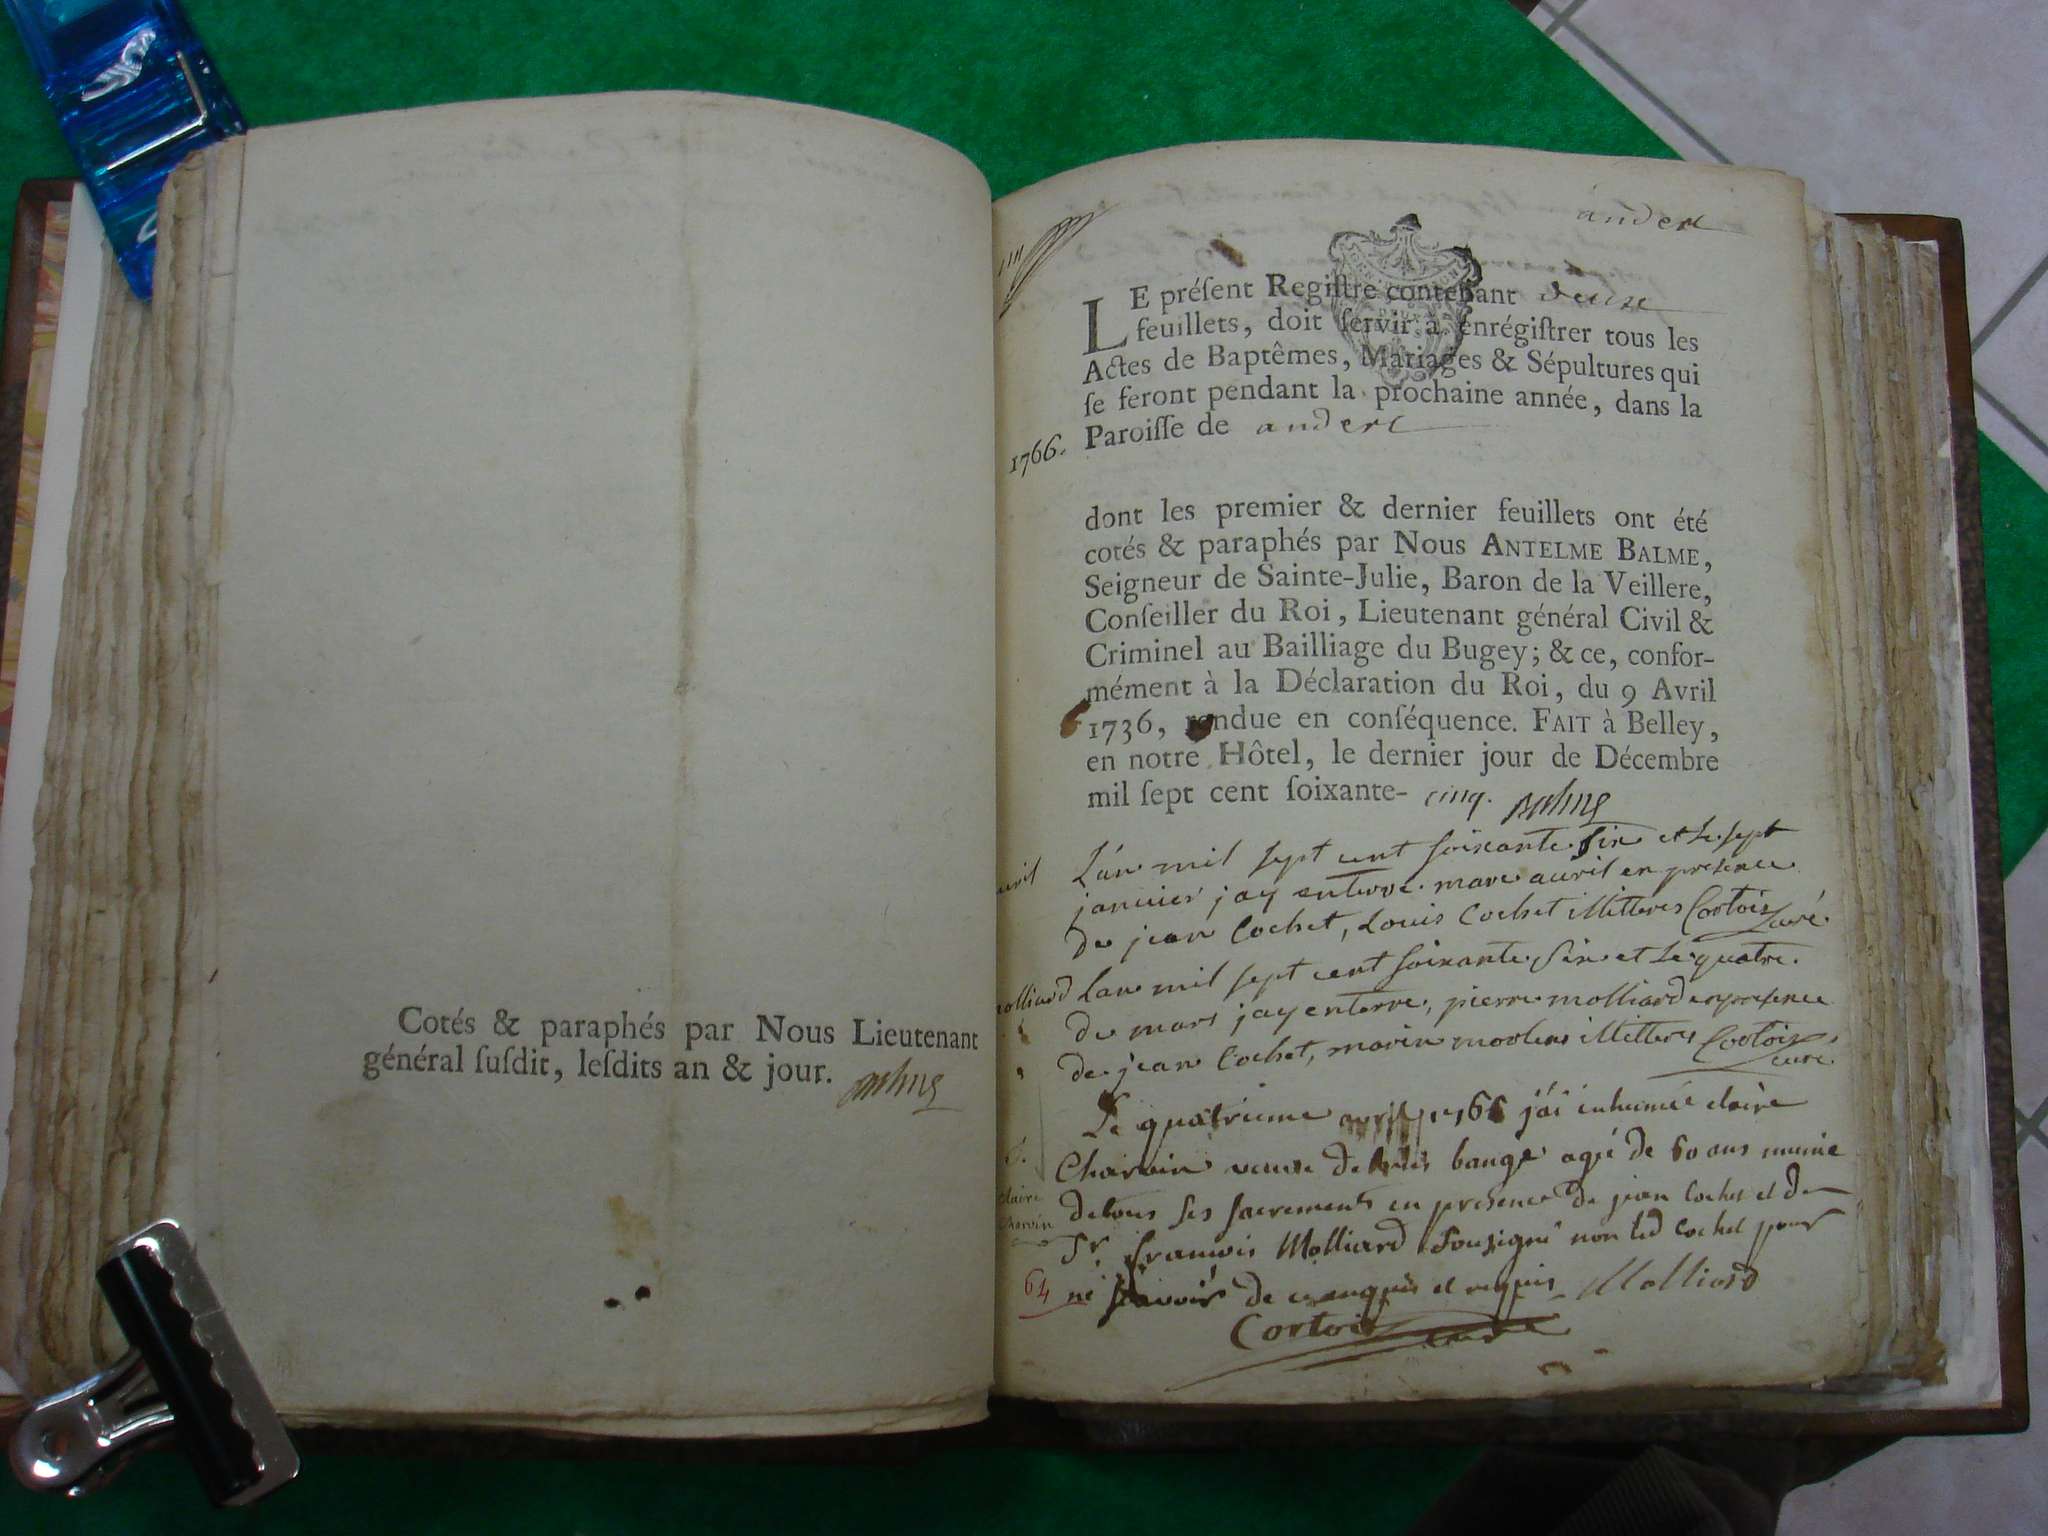 Cotés & paraphés par Nous Lieutenant
général ſuſdit, leſdits an & jour. Balme
andert
LE préſent Regiſtre contenant deux
feuillets, doit ſervir à enrégiſtrer tous les
Actes de Baptêmes, Mariages & Sépultures qui
ſe feront pendant la prochaine année, dans la
Paroiſſe de andert
1766.
dont les premier & dernier feuillets ont été
cotés & paraphés par Nous ANTELME BALME,
Seigneur de Sainte-Julie, Baron de la Veillere,
Conſeiller du Roi, Lieutenant général Civil &
Criminel au Bailliage du Bugey; & ce, confor-
mément à la Déclaration du Roi, du 9 Avril
1736, rendue en conſéquence. FAIT à Belley,
en notre Hôtel, le dernier jour de Décembre
mil ſept cent ſoixante- cinq. Balme
L'an mil sept cent soixante six et le sept
janvier jay enterre marc auril en presence
de jean Cochet, Louis Cochet Cortois curé
molliard Lan mil sept cent soixante six et le quatre
de mars jay enterre, pierre molliard en presence
de jean Cochet, Cortois curé
Le quatrieme avril 1766 j'ai inhumée claire
Charvin veuve de bange agé de 60 ans munie
claire
charvin
de tous ses sacrements en presence de jean Cochet et de
Sr francois Molliard Sousigné non led Cochet pour
64
ne scavoir de ce enquis et requis Molliard
Cortois curé